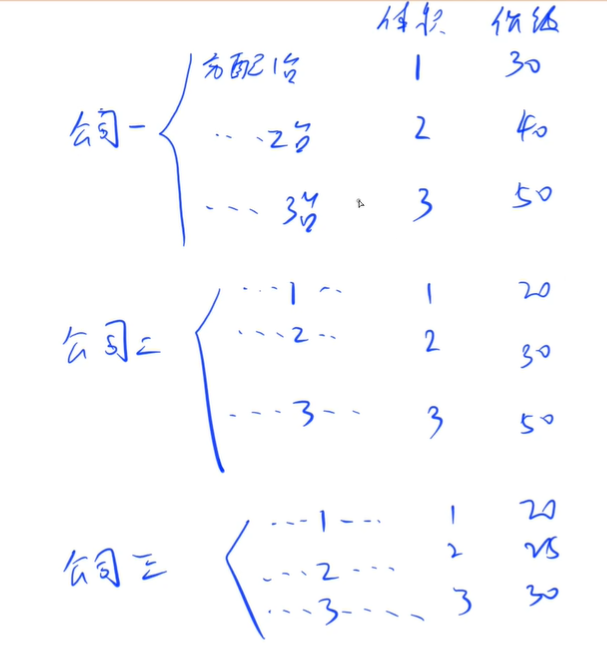 体积 价值
公司一 分配1台 1 30
... 2台 2 40
... 3台 3 50
公司二 ...1... 1 20
...2... 2 30
...3... 3 50
公司三 ...1... 1 20
...2... 2 25
...3... 3 30